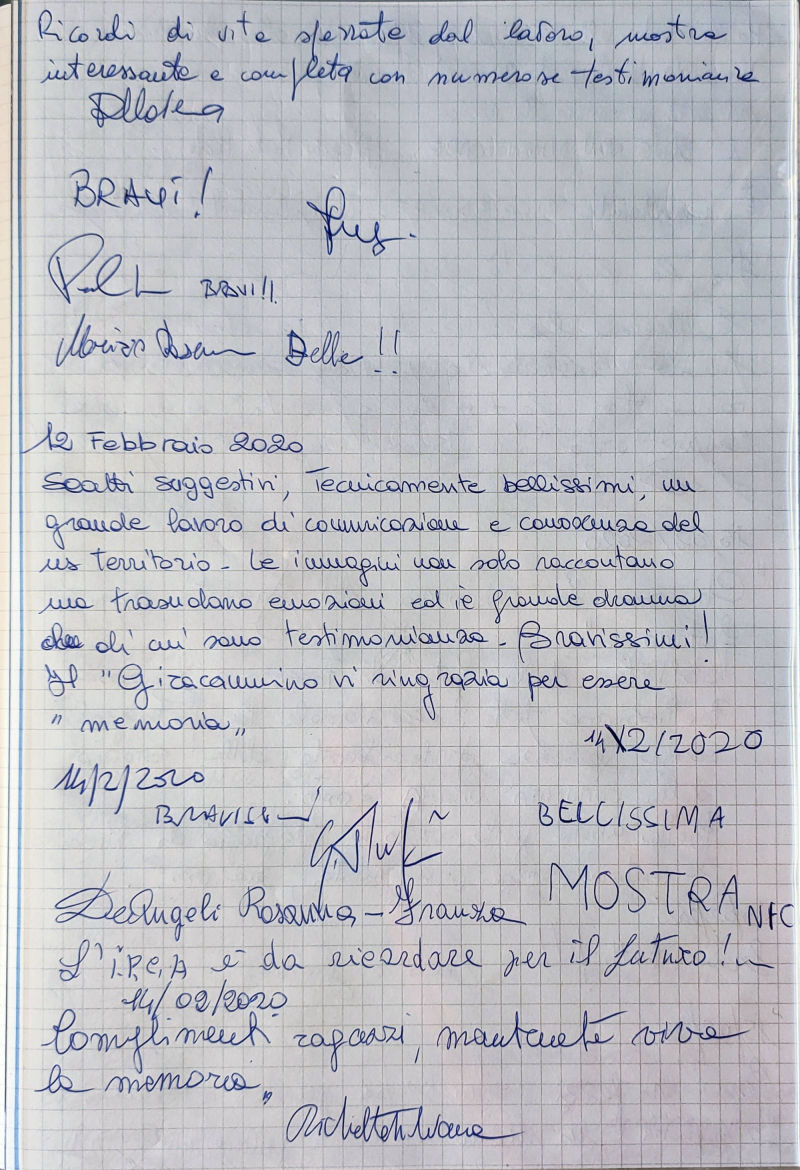 Ricordi di vite spezzate dal lavoro, mostra
interessante e completa con numerose testimonianze
BRAVI!
BRAVI!!
Belle!!
12 Febbraio 2020
Scatti suggestivi, Tecnicamente bellissimi, un
grande lavoro di comunicazione e conoscenza del
ns territorio - Le immagini non solo raccontano
ma trasudano emozioni ed il grande dramma
di cui sono testimonianza - Bravissimi!
Il "Giracammino vi ringrazia per essere
" memoria "
14/2/2020
14/2/2020
BRAVISSIMI
BELLISSIMA
MOSTRA NFC
DeAngeli Rosanna - Franza
L'I.P.C.A è da ricordare per il futuro!
14/02/2020
Complimenti ragazzi, mantenete viva
la memoria "